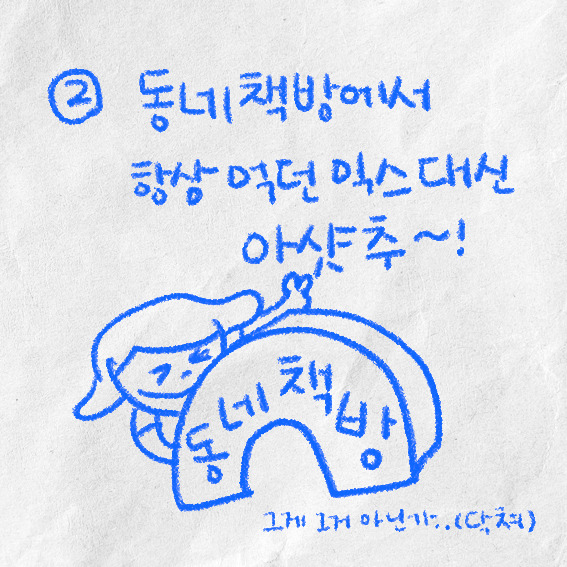 ② 동네책방에서
항상 먹던 믹스 대신
아샷추~!
동네책방
그게 그거 아닌가..(닥쳐)